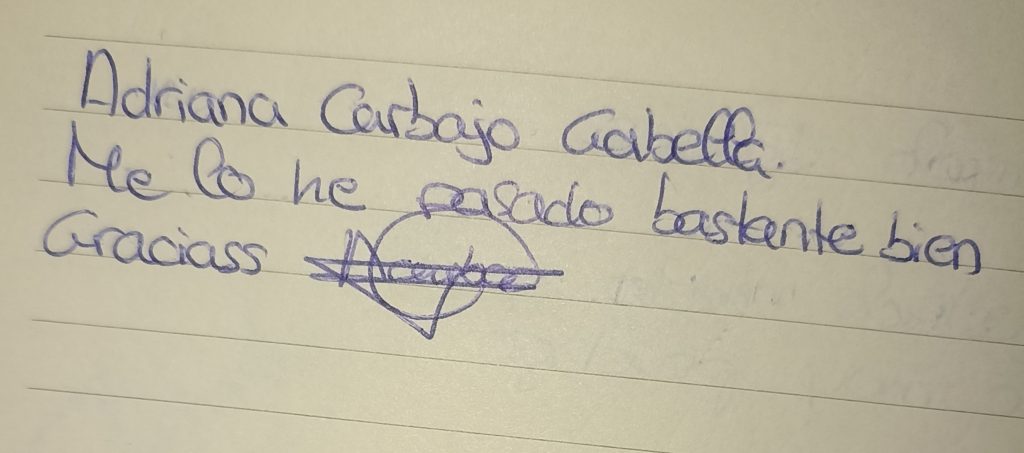 Adriana Carbajo Gabella.
Me lo he pasado bastante bien
Graciass